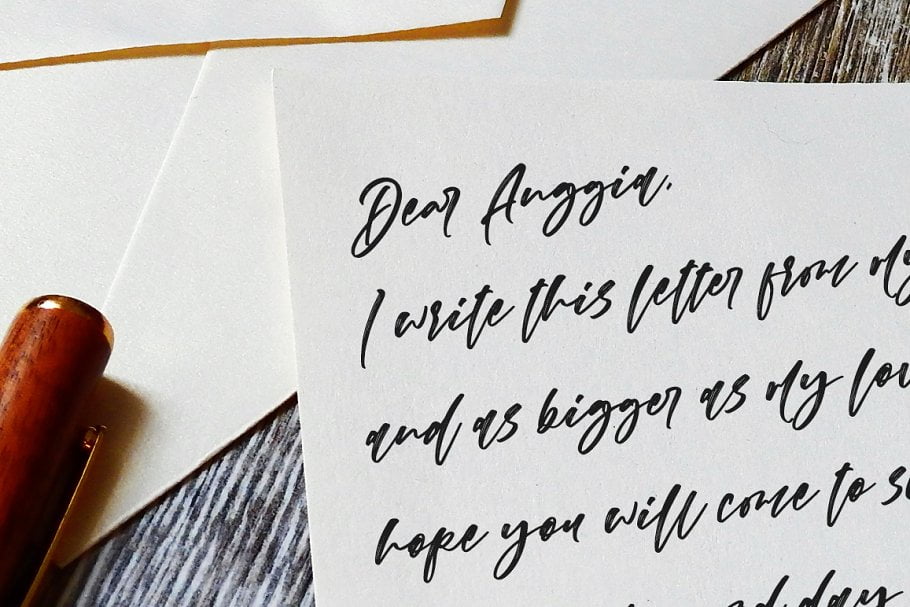 Dear Anggia,
I write this letter from my
and as bigger as my
hope you will come to
day